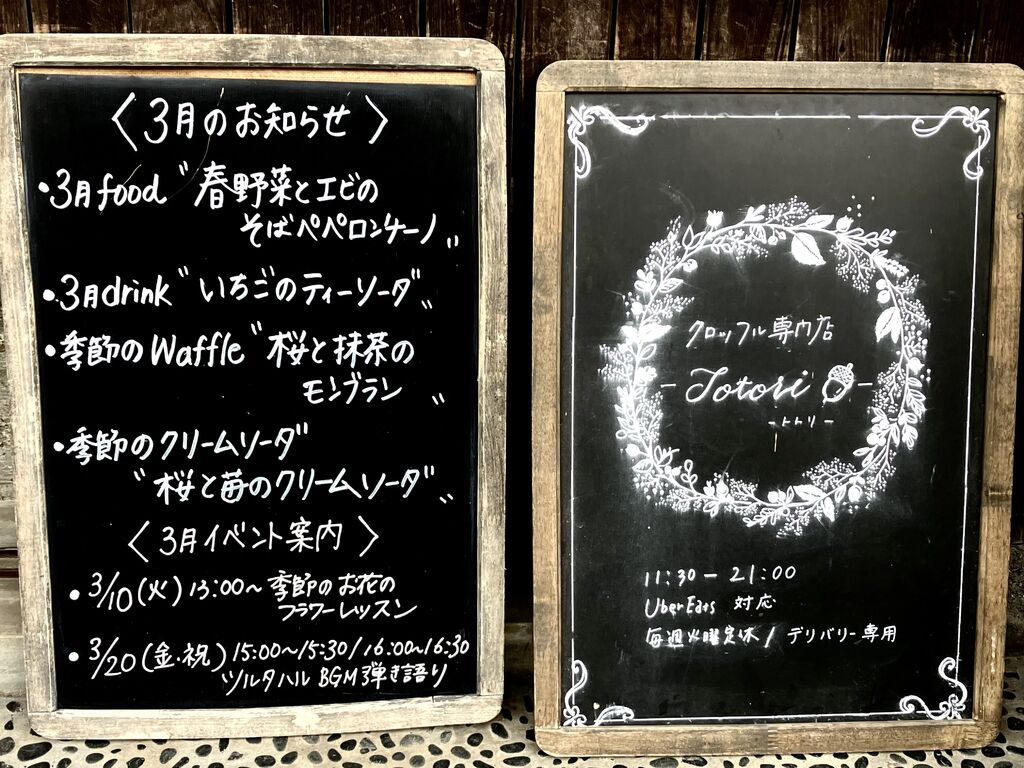 〈 3月のお知らせ 〉
・3月food〝春野菜とエビの
そばペペロンチーノ〟
・3月drink〝いちごのティーソーダ〟
・季節のWaffle〝桜と抹茶の
モンブラン〟
・季節のクリームソーダ
〝桜と苺のクリームソーダ〟
〈 3月イベント案内 〉
・3/10(火) 13:00〜 季節のお花の
フラワーレッスン
・3/20(金・祝) 15:00〜15:30/16:00〜16:30
ツルタハル BGM弾き語り
クロッフル専門店
- Totori -
- トトリ -
11:30 - 21:00
UberEats 対応
毎週火曜定休 / デリバリー専用